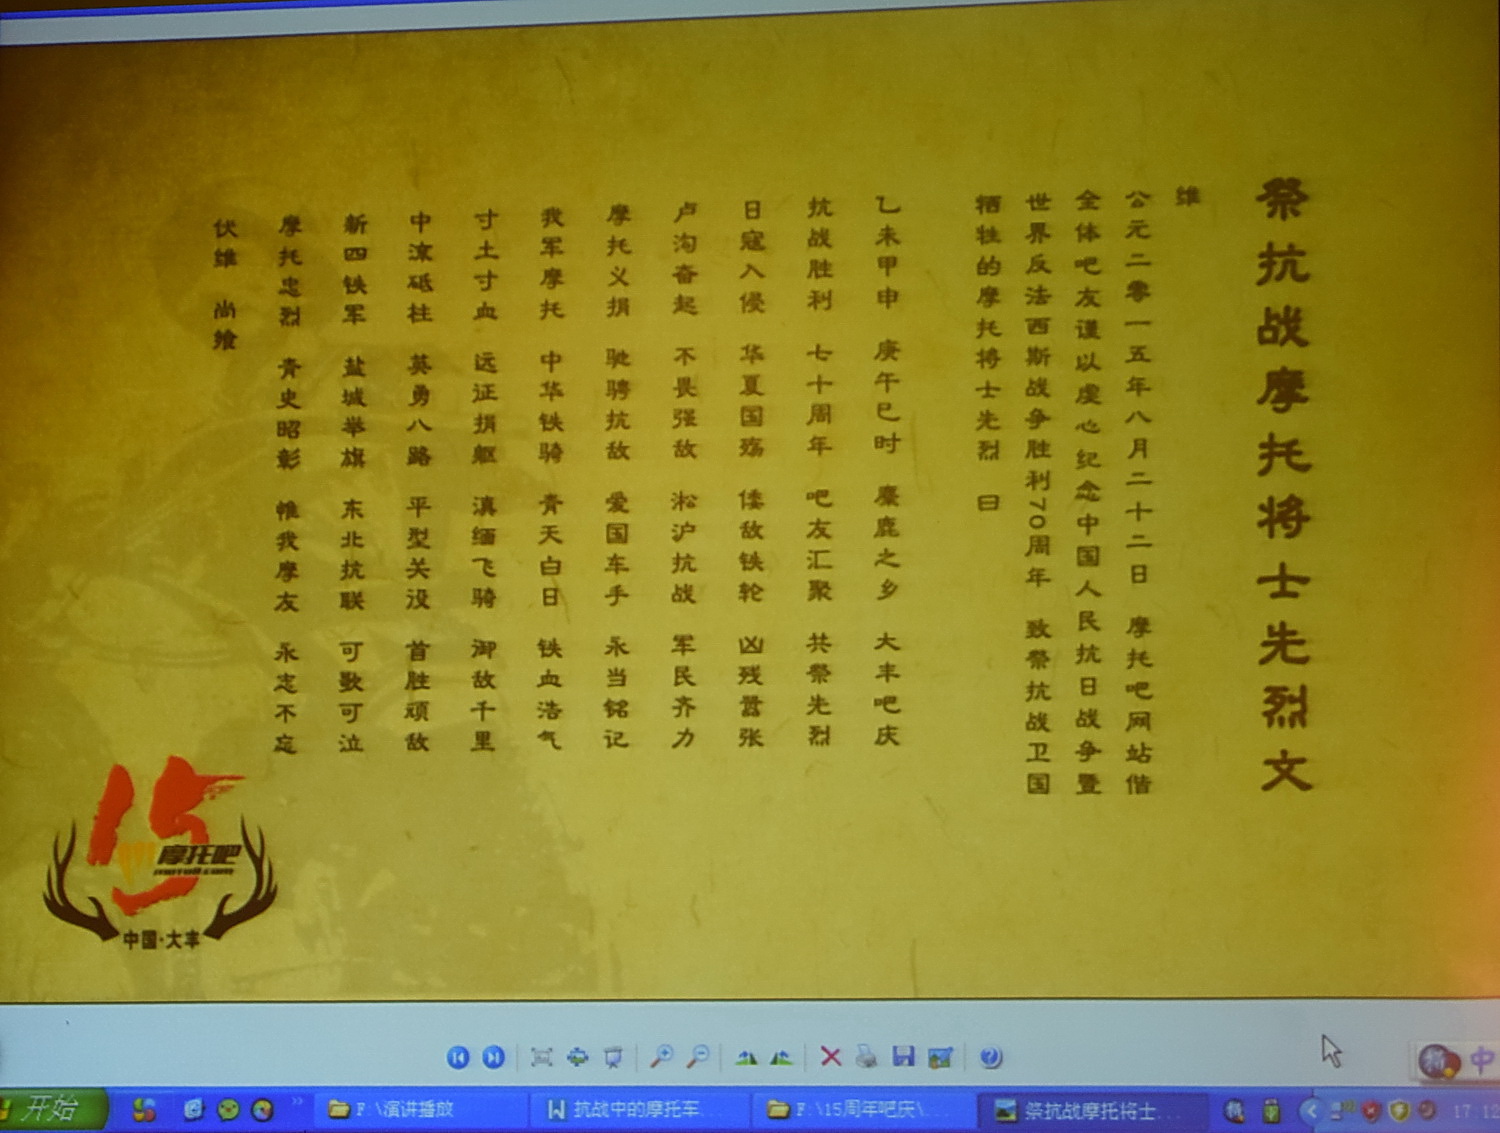 祭抗战摩托将士先烈文
维
公元二零一五年八月二十二日 摩托吧网站偕
全体吧友谨以虔心纪念中国人民抗日战争暨
世界反法西斯战争胜利70周年 致祭抗战卫国
牺牲的摩托将士先烈 曰
乙未甲申 庚午巳时 麋鹿之乡 大丰吧庆
抗战胜利 七十周年 吧友汇聚 共祭先烈
日寇入侵 华夏国殇 倭敌铁轮 凶残嚣张
卢沟奋起 不畏强敌 淞沪抗战 军民齐力
摩托义捐 驰骋抗敌 爱国车手 永当铭记
我军摩托 中华铁骑 青天白日 铁血浩气
寸土寸血 远征捐躯 滇缅飞骑 御敌千里
中流砥柱 英勇八路 平型关没 首胜顽敌
新四铁军 盐城举旗 东北抗联 可歌可泣
摩托忠烈 青史昭彰 惟我摩友 永志不忘
伏维 尚飨
15
摩托吧
中国·大丰
开始
F:\演讲播放
抗战中的摩托车...
F:\15周年吧庆\...
祭抗战摩托将士...
中
17:12